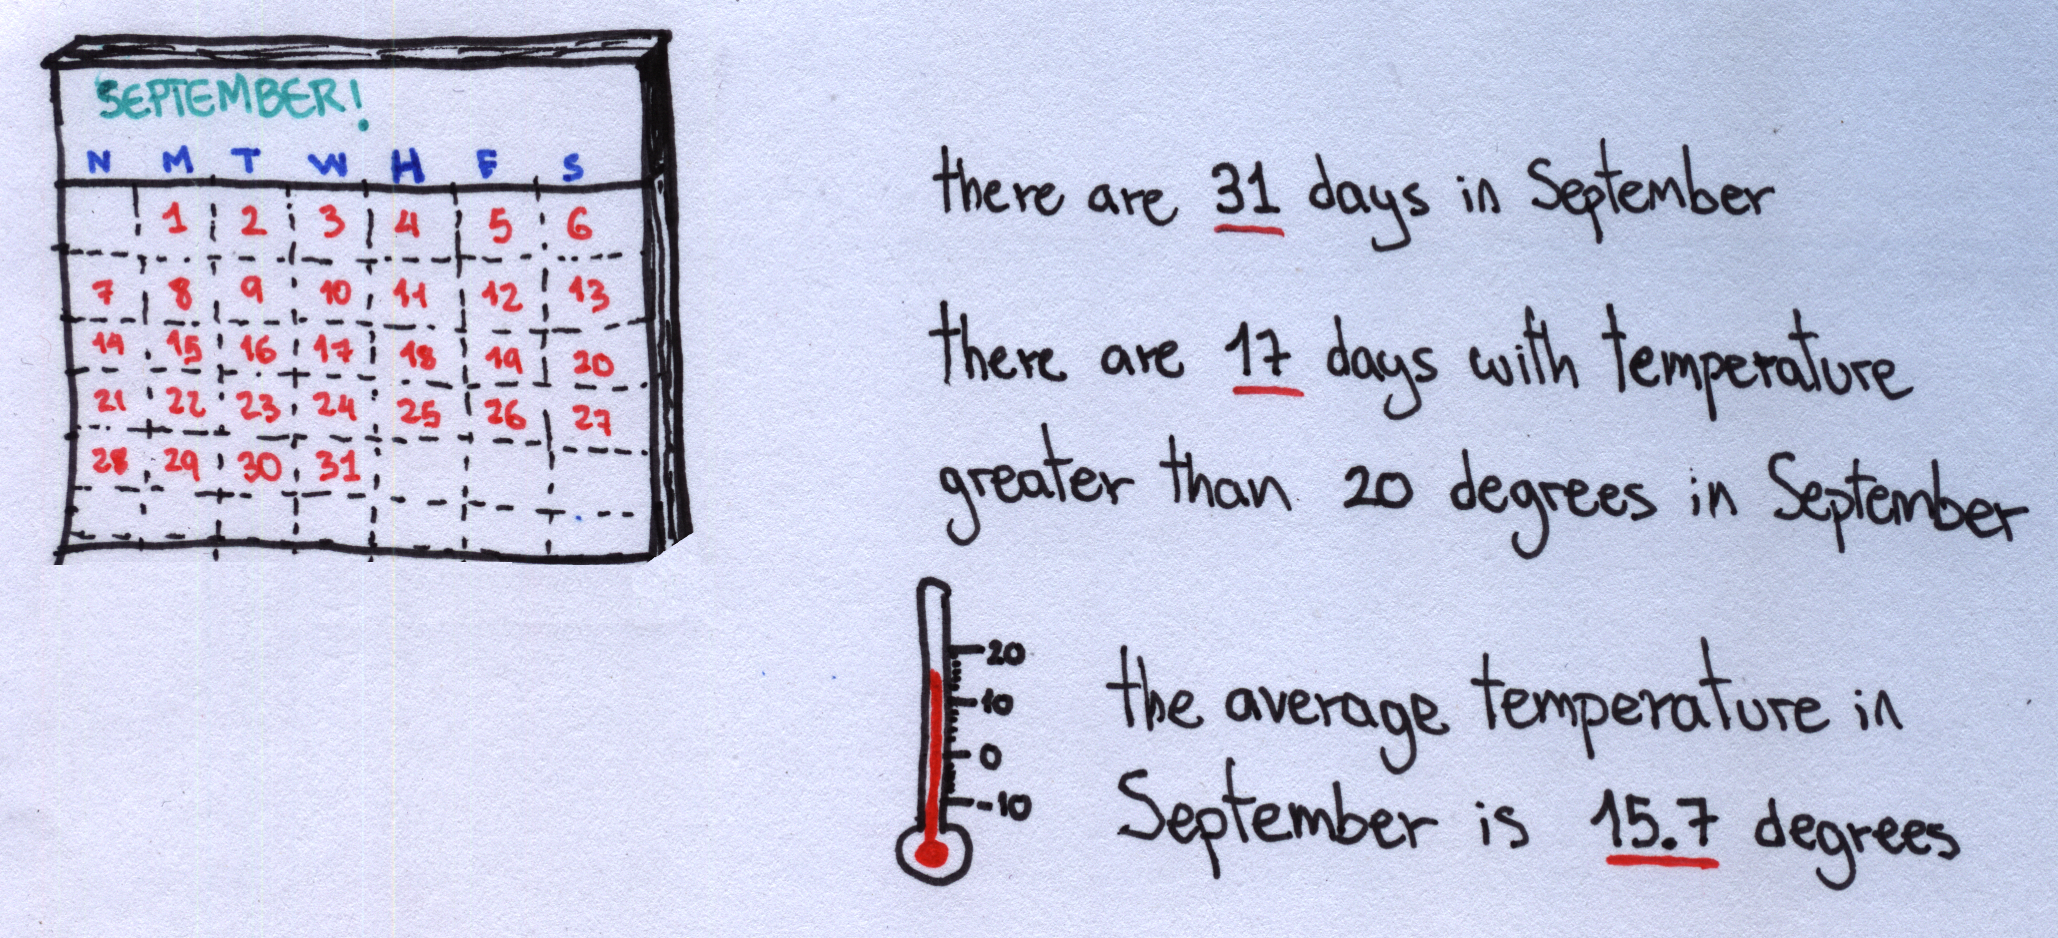 SEPTEMBER!
N M T W H F S
1 2 3 4 5 6
7 8 9 10 11 12 13
14 15 16 17 18 19 20
21 22 23 24 25 26 27
28 29 30 31
there are 31 days in September
there are 17 days with temperature
greater than 20 degrees in September
20
10
0
-10
the average temperature in
September is 15.7 degrees